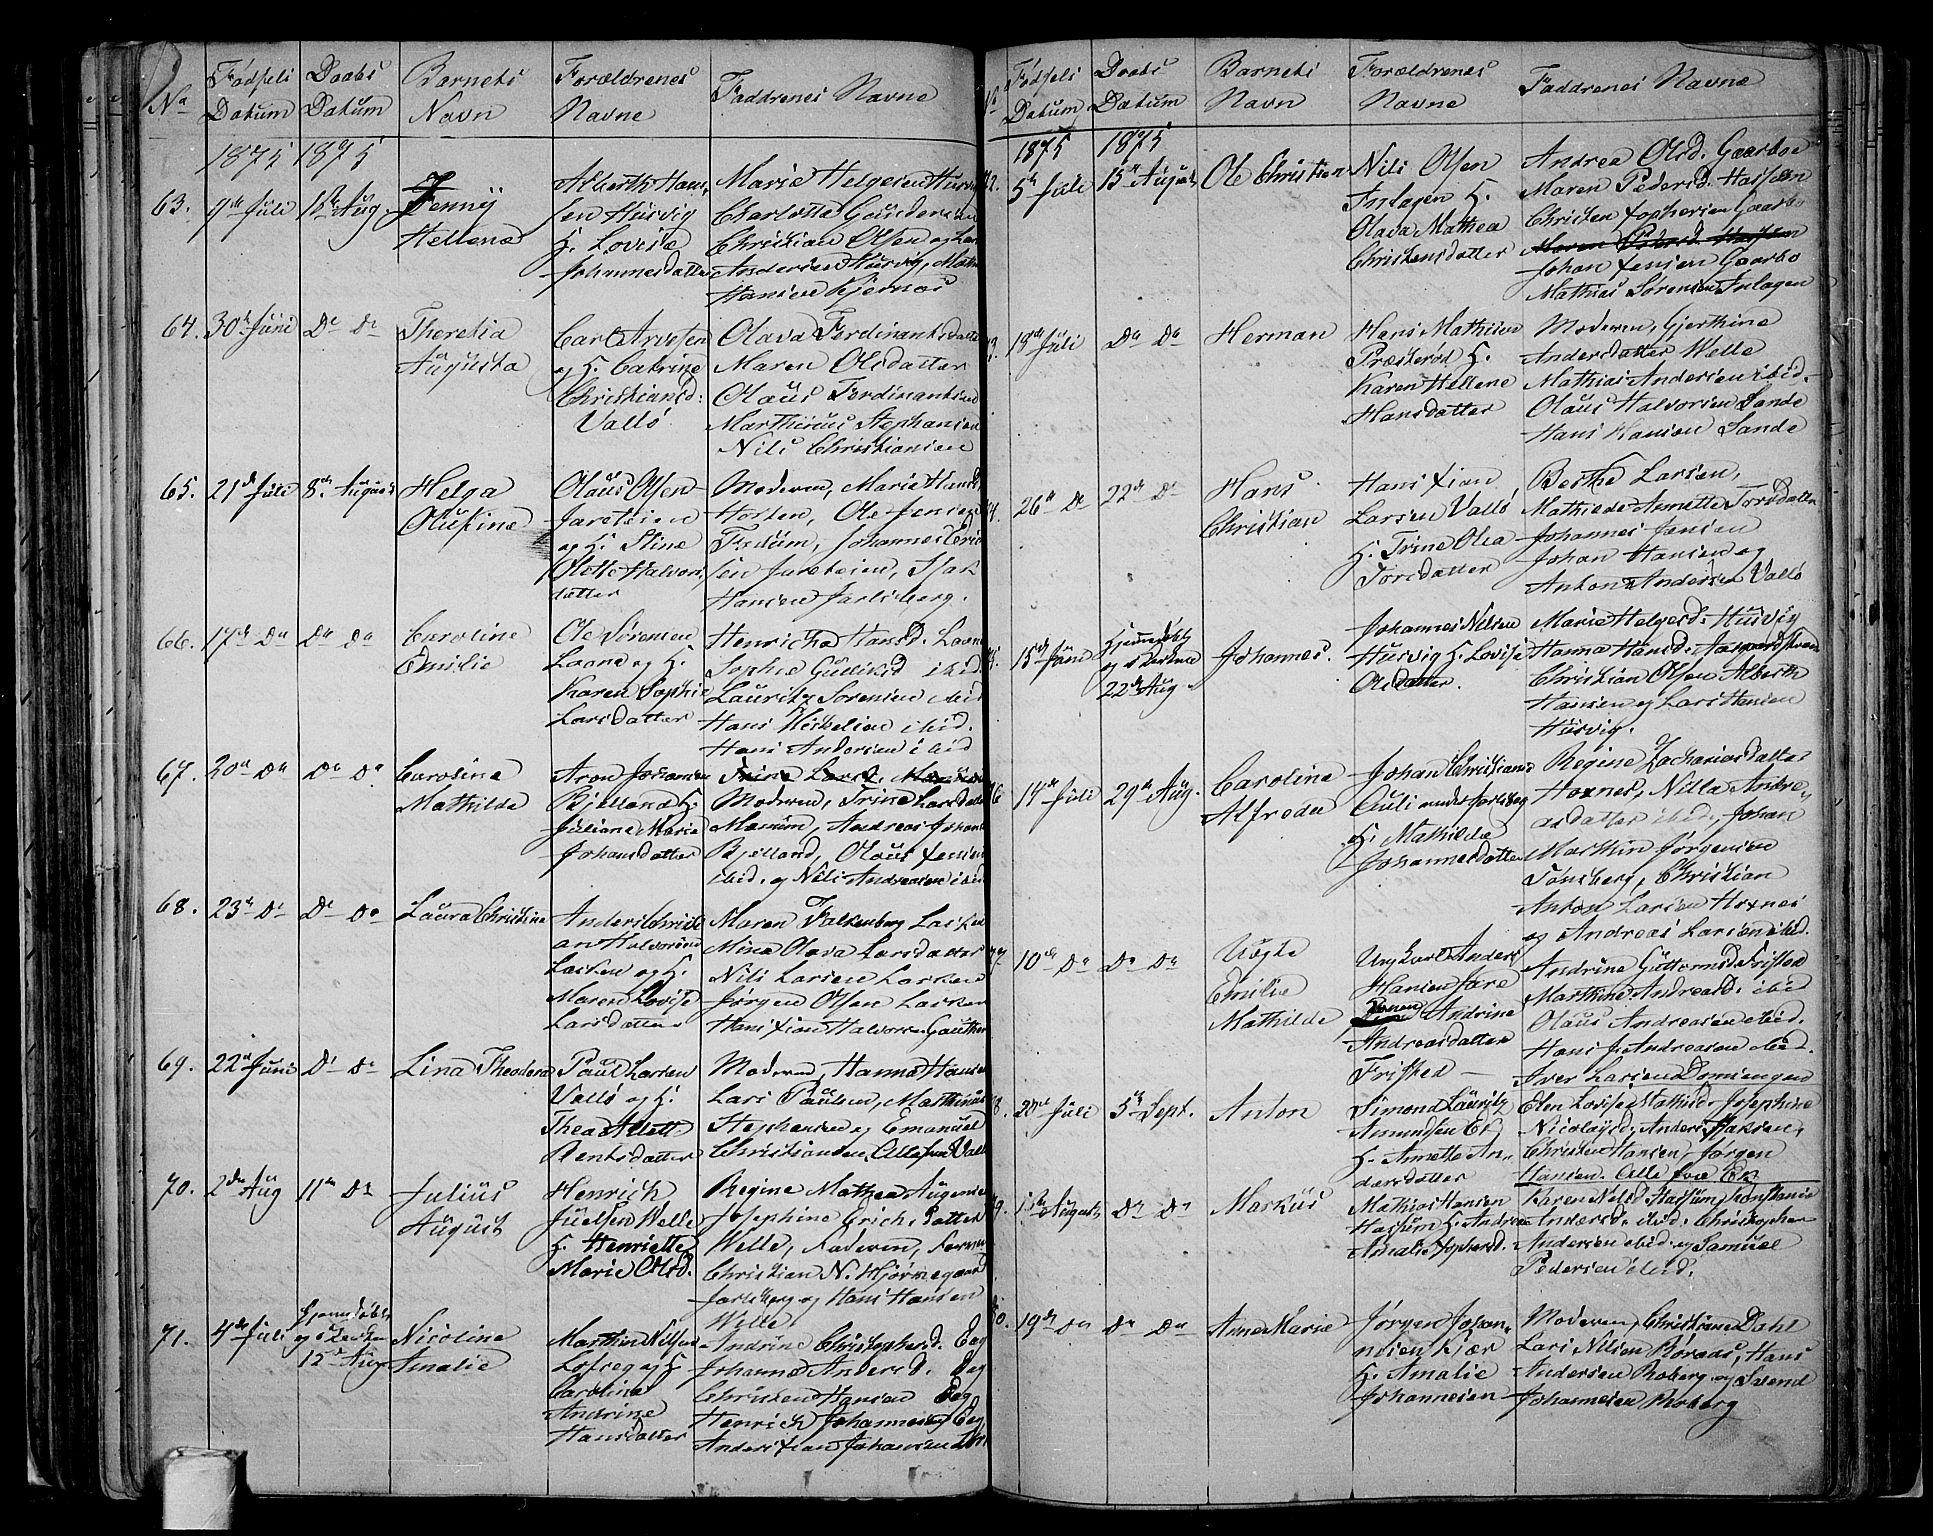 No Fødsels Datum Daabs Datum Barnets Navn Forældrenes Navne Faddrenes Navne
1875 1875
63. 9de Juli 1ste Aug. Jenny Hellene
Alberth Han-
sen Husvig
H. Lovise
Johannesdatter
Marie Helgesen
Charlotte Gundersen
Christian Olsen og
Andersen Husvig,
Hansen Kjernæs
64. 30te Juni Do Do Theresia Augusta
Carl Arvesen
og H. Catrine
Christiansd.
Vallø
Olava Ferdinantsdatter
Maren Olsdatter
Olaus Ferdinantsen
Marthinus Stephansen
Nils Christiansen
65. 21de Juli 8de August Helga Olufine
Olaus Olsen
Jarsteien
og H. Stine
Olette Halvors
datter
Moderen, Marie Hansd.
Horten, Ole Jensen
Fredum, Johannes Eric
sen Jarsteien, Isak
Hansen Jarlsberg.
66. 17de Do Do Do Caroline Emilie
Ole Sørensen
Laane og H.
Karen Sophie
Larsdatter
Henricha Hansd. Laane
Sophie Gulliksd ibid
Lauritz Sørensen ibid
Hans Mikkelsen ibid.
Hans Andersen ibid
67. 20de Do Do Do Caroline Mathilde
Aron Johansen
Bjelland H.
Juliane Marie
Johansdatter
Trine Larsd.
Moderen, Trine Larsdatter
Mansum, Andreas Johans
Bjelland, Olaus Jensen
ibid. og Nils Andreasen ibid
68. 23de Do Do Do Laura Christine
Anders Christi
an Halvorsen
Lasken og H.
Maren Lovise
Larsdatter
Maren Falkenberg Lasken
Mina Olava Larsdatter
Nils Larsen Lasken
Jørgen Olsen Lasken
Hans Xian Halvorsen
69. 22de Juni Do Do Lina Theodora
Paul Larsen
Vallø og H.
Thea Allett
Berntsdatter
Moderen, Hanna Hansen
Lars Paulsen, Marthinus
Stephansen og Emanuel
Christiansen, Alle fra Vallø
70. 2den Aug 11te Do Julius August
Henrich
Juelsen Welle
H. Henriette
Marie Olsd.
Regine Mathea Augensen
Josephine Erichs Datter
Welle, Faderen,
Christian N. Hjørnegaard
Jarlsberg og Hans Hansen
Welle
71. 4de Juli Hjemmedøbt og i Kirken 15de Aug Nicoline Amalie
Marthin Nilsen
Lofseg og H
Caroline
Andrine
Hansdatter
Andrine Christophersd. Eeg
Johanne Andersd. Eeg
Christen Hansen Eeg
Henrich Johannesen Eeg
Anders Xian Johansen
No Fødsels Datum Daabs Datum Barnets Navn Forældrenes Navne Faddrenes Navne
1875 1875
5te Juli 15de August Ole Christian
Nils Olsen
Inlagen H.
Olava Mathea
Christensdatter
Andrea Olsd. Gaarbo
Maren Pedersd. Hassum
Christen Xophersen Gaarbo
Maren Pedersd. Hassum
Johan Jensen Gaarbo
Mathias Sørensen Inlagen
18de Juli Do Do Herman
Hans Mathisen
Præsterød H.
Karen Hellene
Hansdatter
Moderen, Gjerthine
Andersdatter Welle
Mathias Andersen ibid.
Olaus Halvorsen Sande
Hans Hansen Sande
26de Do 22de Do Hans Christian
Hans Xian
Larsen Vallø
H. Trine Olea
Torsdatter
Berthe Larsen,
Mathilde Annette Torsdatter
Johannes Jensen
Johan Hansen og
Anton Andersen Vallø
15de Juni Hjemmedøbt og i Kirken 22de Aug Johannes.
Johannes Nilsen
Husvig H. Lovise
Olsdatter.
Marie Helgesd. Husvig
Hanna Hansd. Aasgaardstrand
Christian Olsen Alberth
Hansen og Lars Hansen
Husvig.
14de Juli 29de Aug. Caroline Alfreda
Johan Christians
Auli under Jarlsberg
H. Mathilde
Johannesdatter
Regine Zachariasdatter
Hoxnes, Nilla Andre-
asdatter ibid, Johan
Marthin Jørgensen
Tønsberg, Christian
Anton Larsen Hoxnes
og Andreas Larsen ibid.
10de Do Do Do Emilie Mathilde
Ungkarl Anders
Hansen Jare
Pigen Andrine
Andreasdatter
Fristed
Andrine Guttormsd Fristed
Marthine Andreasd. ibid
Olaus Andreasen ibid.
Hans J. Andreasen ibid.
Aver Larsen
Juli 5te Sept. Anton
Simond Lauritz
Amundsen Ek
H. Annette An-
dersdatter
Elen Lovise Mathisd. Josephine
Nicolaysd. Anders Hansen,
Christen Hansen, Jørgen
Hansen. Alle fra Ek.
1ste August Do Do Markus
Mathias Hansen
Hassum H. Andrea
Amalie Xophersd.
Karen Nilsd Hassum, Konstance
Andersd. ibid. Christopher
Andersen ibid. og Samuel
Pedersen ibid.
19de Do Do Do Anne Marie
Jørgen Johan-
nesen Kjær
H. Amalie
Johannesen
Moderen, Christiane Dahl
Lars Nilsen Røraas, Hans
Andersen Roberg og Svend
Johannesen Roberg